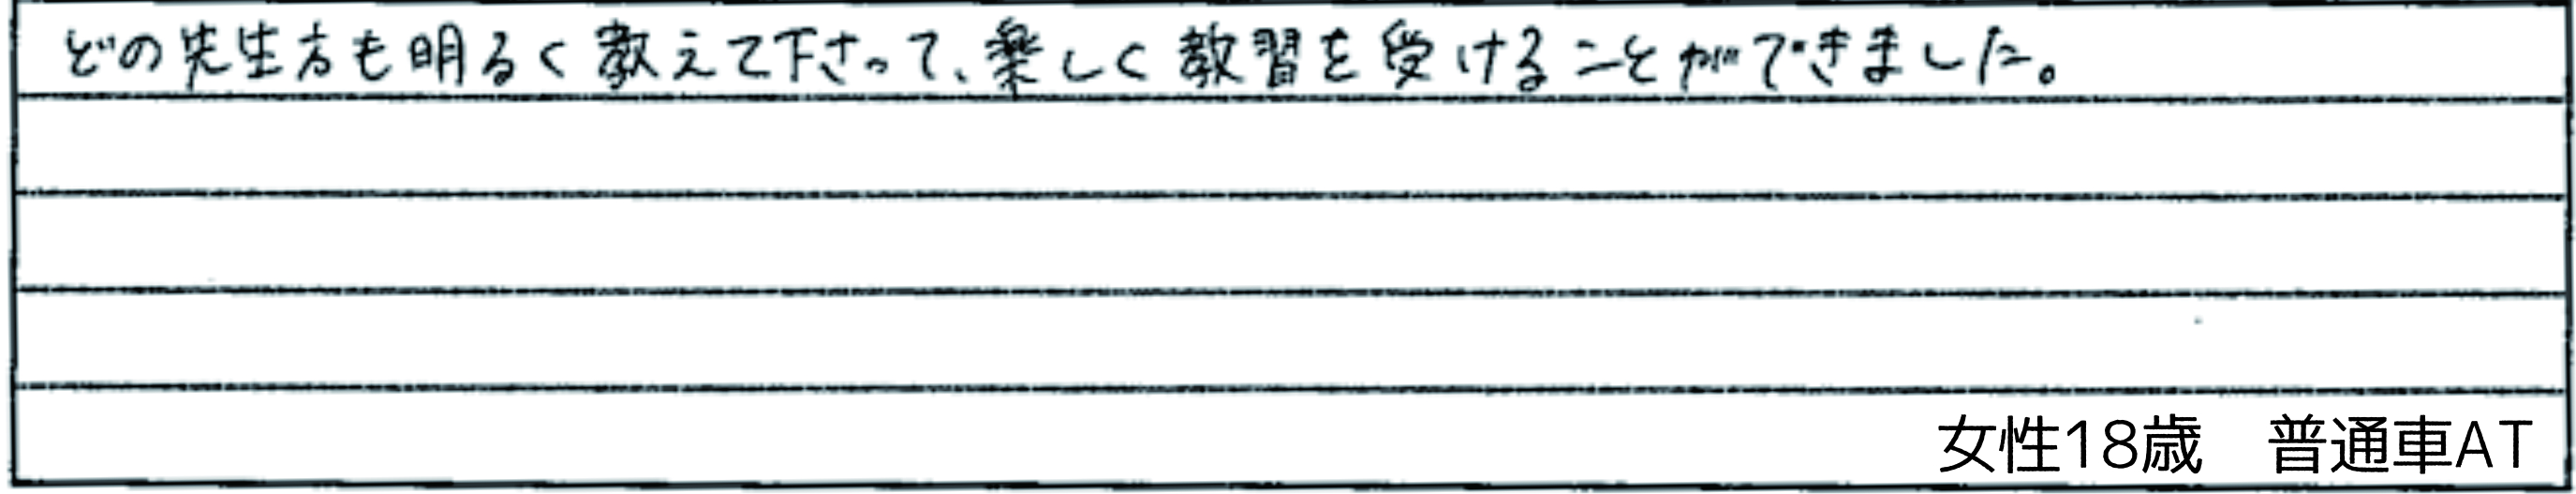 どの先生方も明るく教えて下さって、楽しく教習を受けることができました。
女性18歳　普通車AT